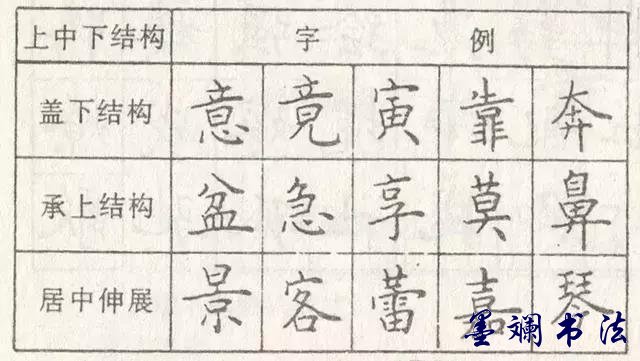 上中下结构 字 例
盖下结构 意 竟 寅 靠 奔
承上结构 盆 急 享 莫 鼻
居中伸展 景 客 蕾 嘉 琴
墨斓书法